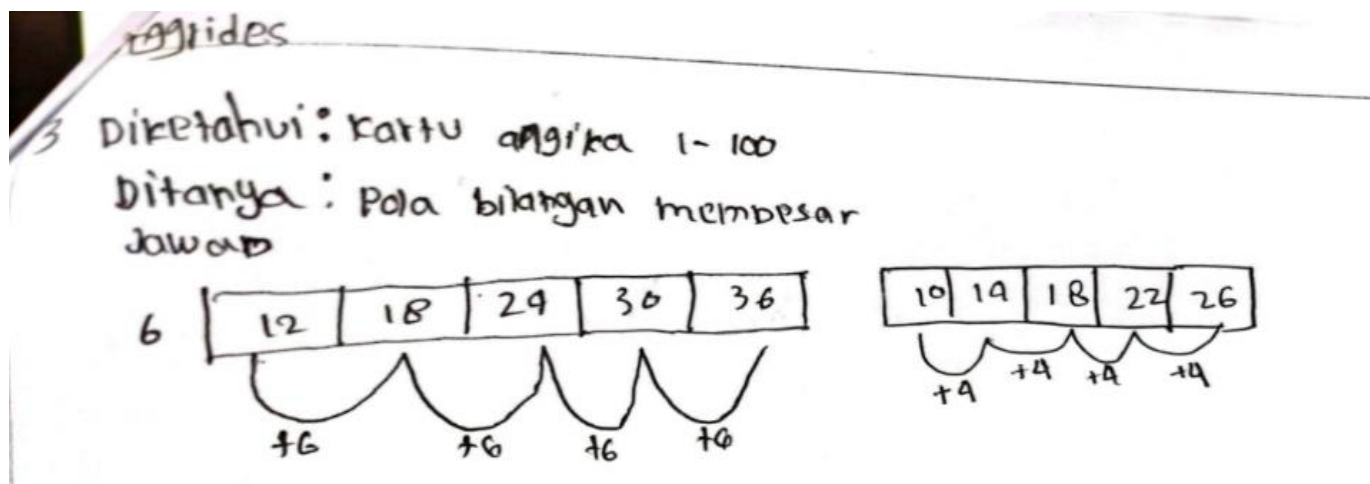 nggrides
3 Diketahui : kartu angika 1-100
Ditanya : Pola bilangan membesar
Jawab
6 12 18 24 30 36
+6 +6 +6 +6
10 14 18 22 26
+4 +4 +4 +4